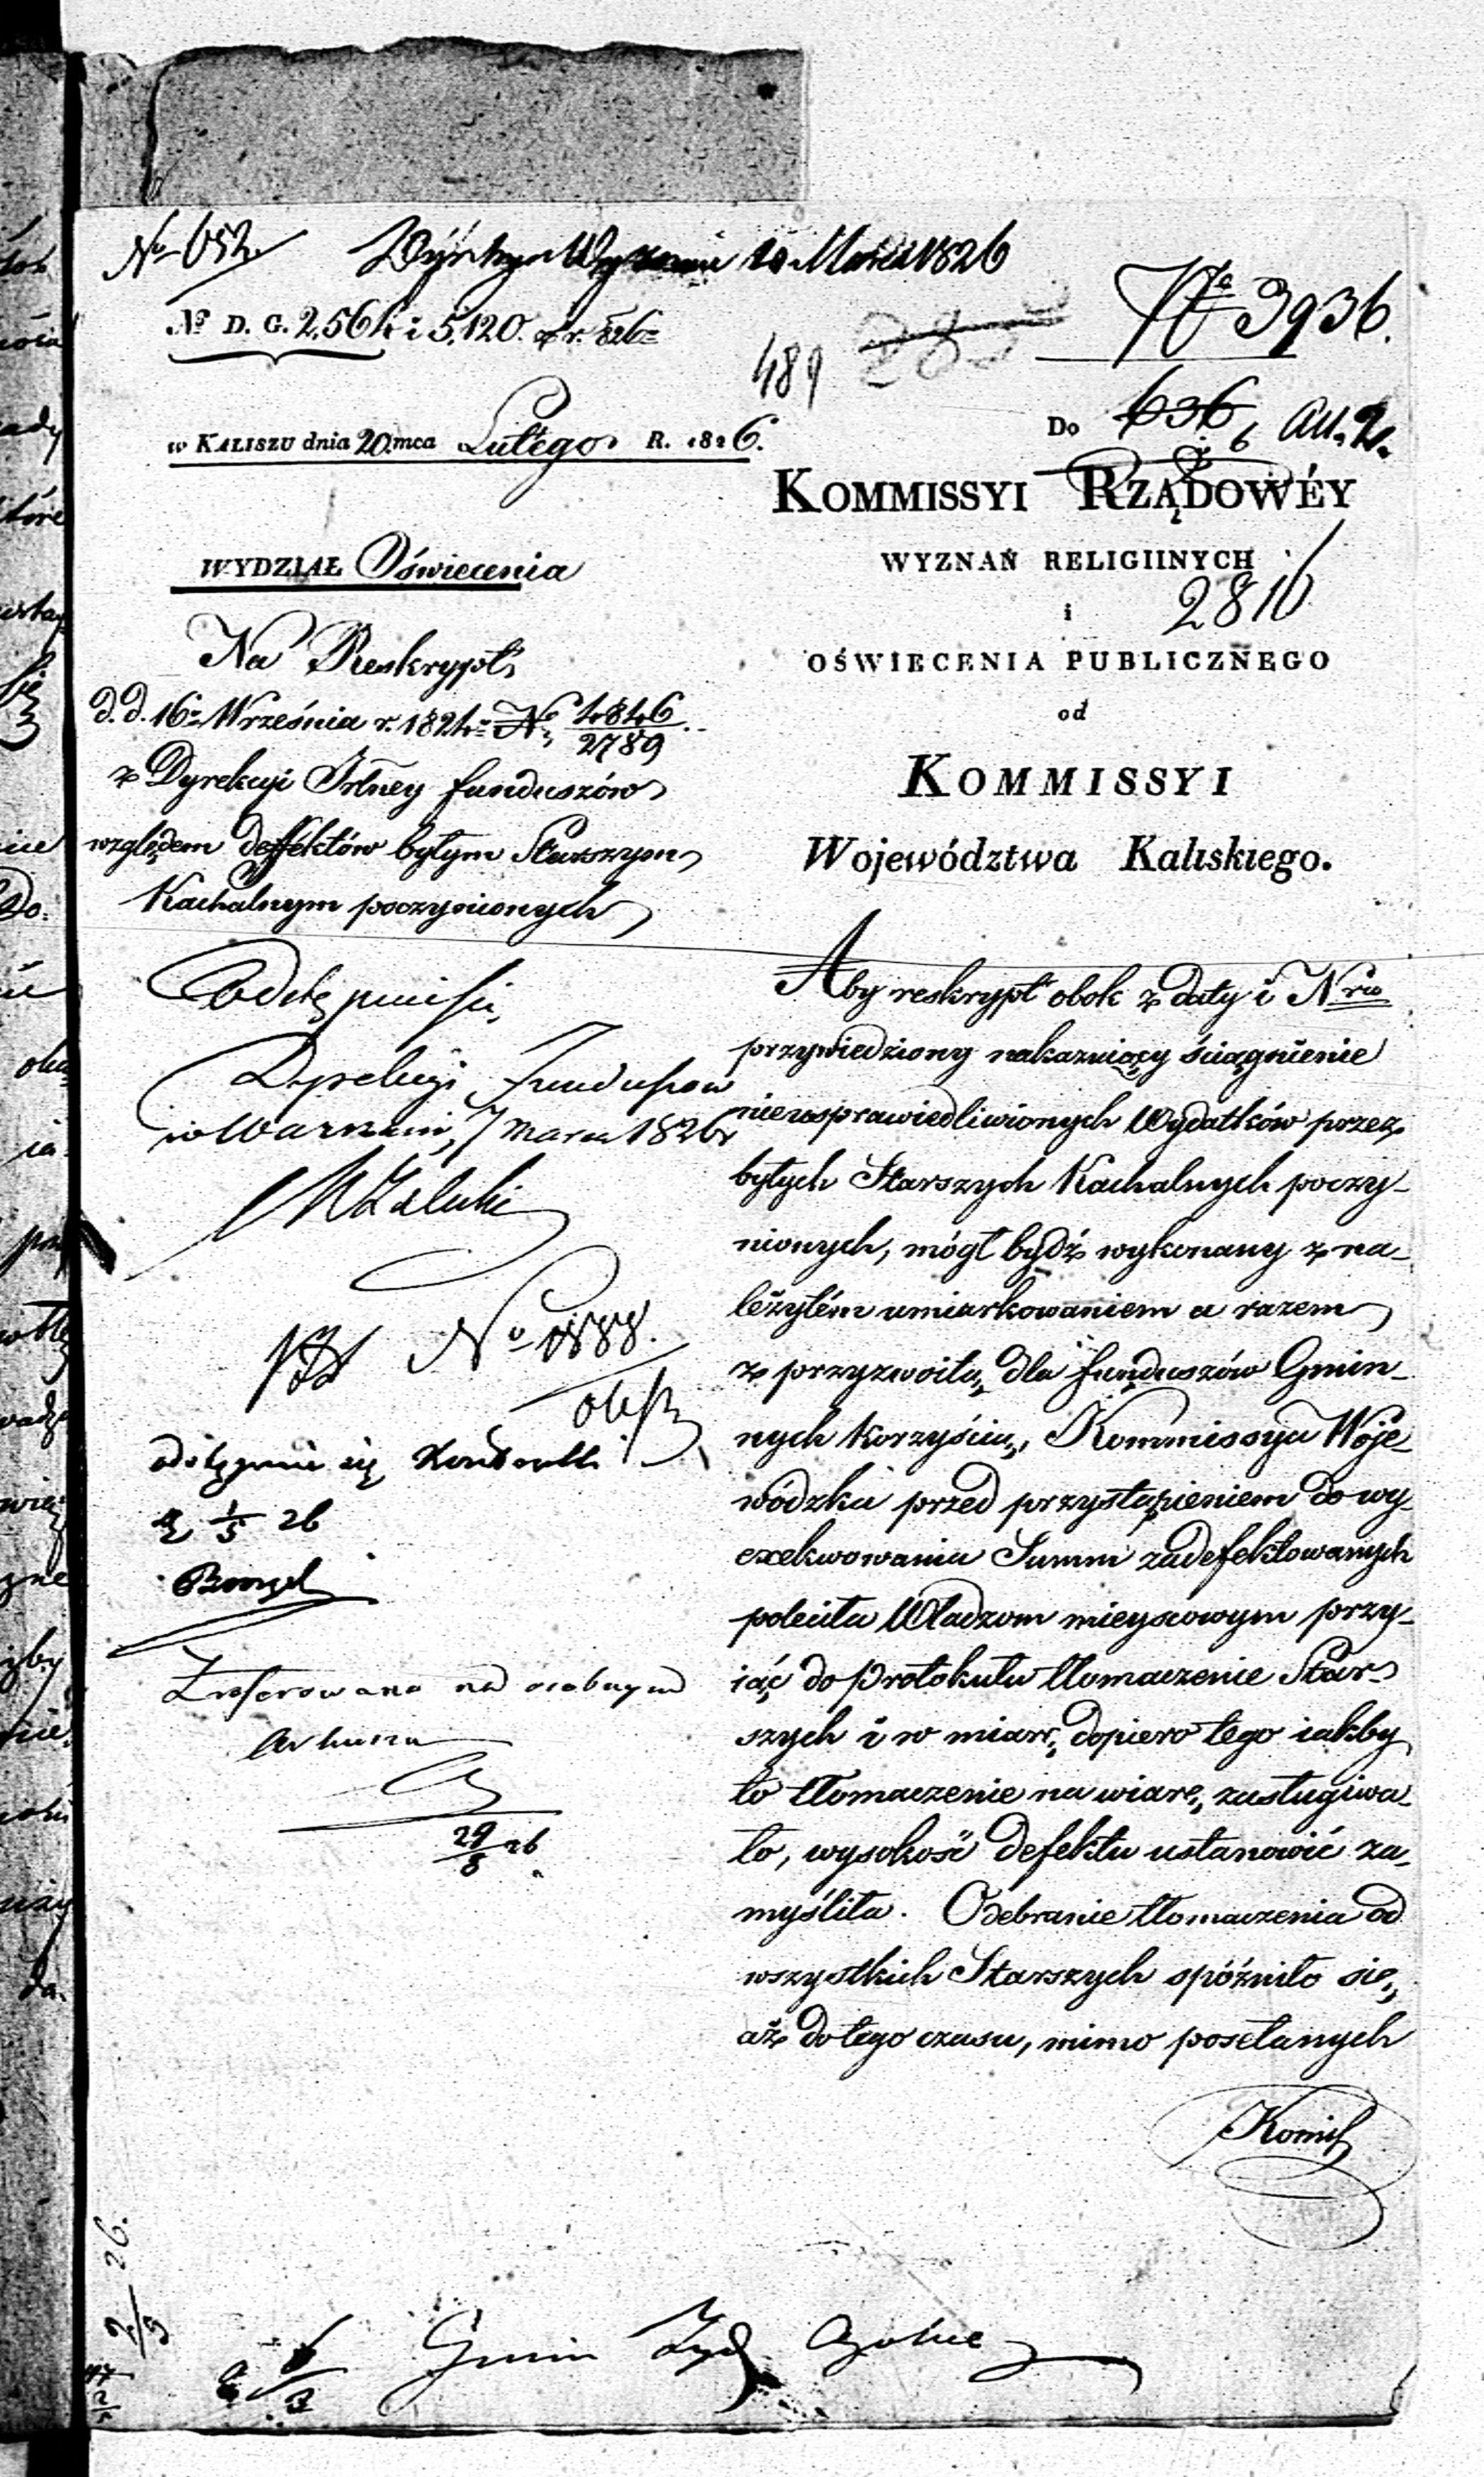 No 652.
10 Marca 1826
No D. G. 2,564 i 5,120. z r. 826
No 3936.
489
w KALISZU dnia 20. mca Lutego R. 1826.
Do 636
KOMMISSYI RZĄDOWÉY
WYZNAŃ RELIGIINYCH
2816
i
OŚWIECENIA PUBLICZNEGO
od
KOMMISSYI
Województwa Kaliskiego.
WYDZIAŁ Oświecenia
Na Reskrypt
d. d. 16. Września r. 1824 No 4846
2789
z Dyrekcyi Jrlney funduszów
względem deffektów byłym Starszym
Kachalnym poczynionych
Odstępuie się
Dyrekcyi Funduszow
w Warszawie, 7 Marca 1826 r
No 1888.
odstępuie się Kontrolli
1/5 26
na osobnym
Arkuszu
29/8 26
Aby reskrypt obok z daty i Nru
przywiedziony nakazuiący ściągnienie
nieusprawiedliwionych Wydatków przez
byłych Starszych Kachalnych poczy-
nionych, mógł bydź wykonany z na-
leżytém umiarkowaniem a razem
z przyzwoitą dla funduszów Gmin-
nych korzyścią, Kommissya Woje-
wódzka przed przystąpieniem do wy-
exekwowania Summ zadefektowanych
poleciła Władzom mieyscowym przy-
iąć do Protokułu tłomaczenie Star-
szych i w miarę dopiero tego iakby
to tłomaczenie na wiarę zasługiwa-
ło, wysokość defektu ustanowić za-
myśliła. Odebranie tłomaczenia od
wszystkich Starszych spóźniło się
aż do tego czasu, mimo posełanych
Komiss
2/5 26.
Gmin Żyd